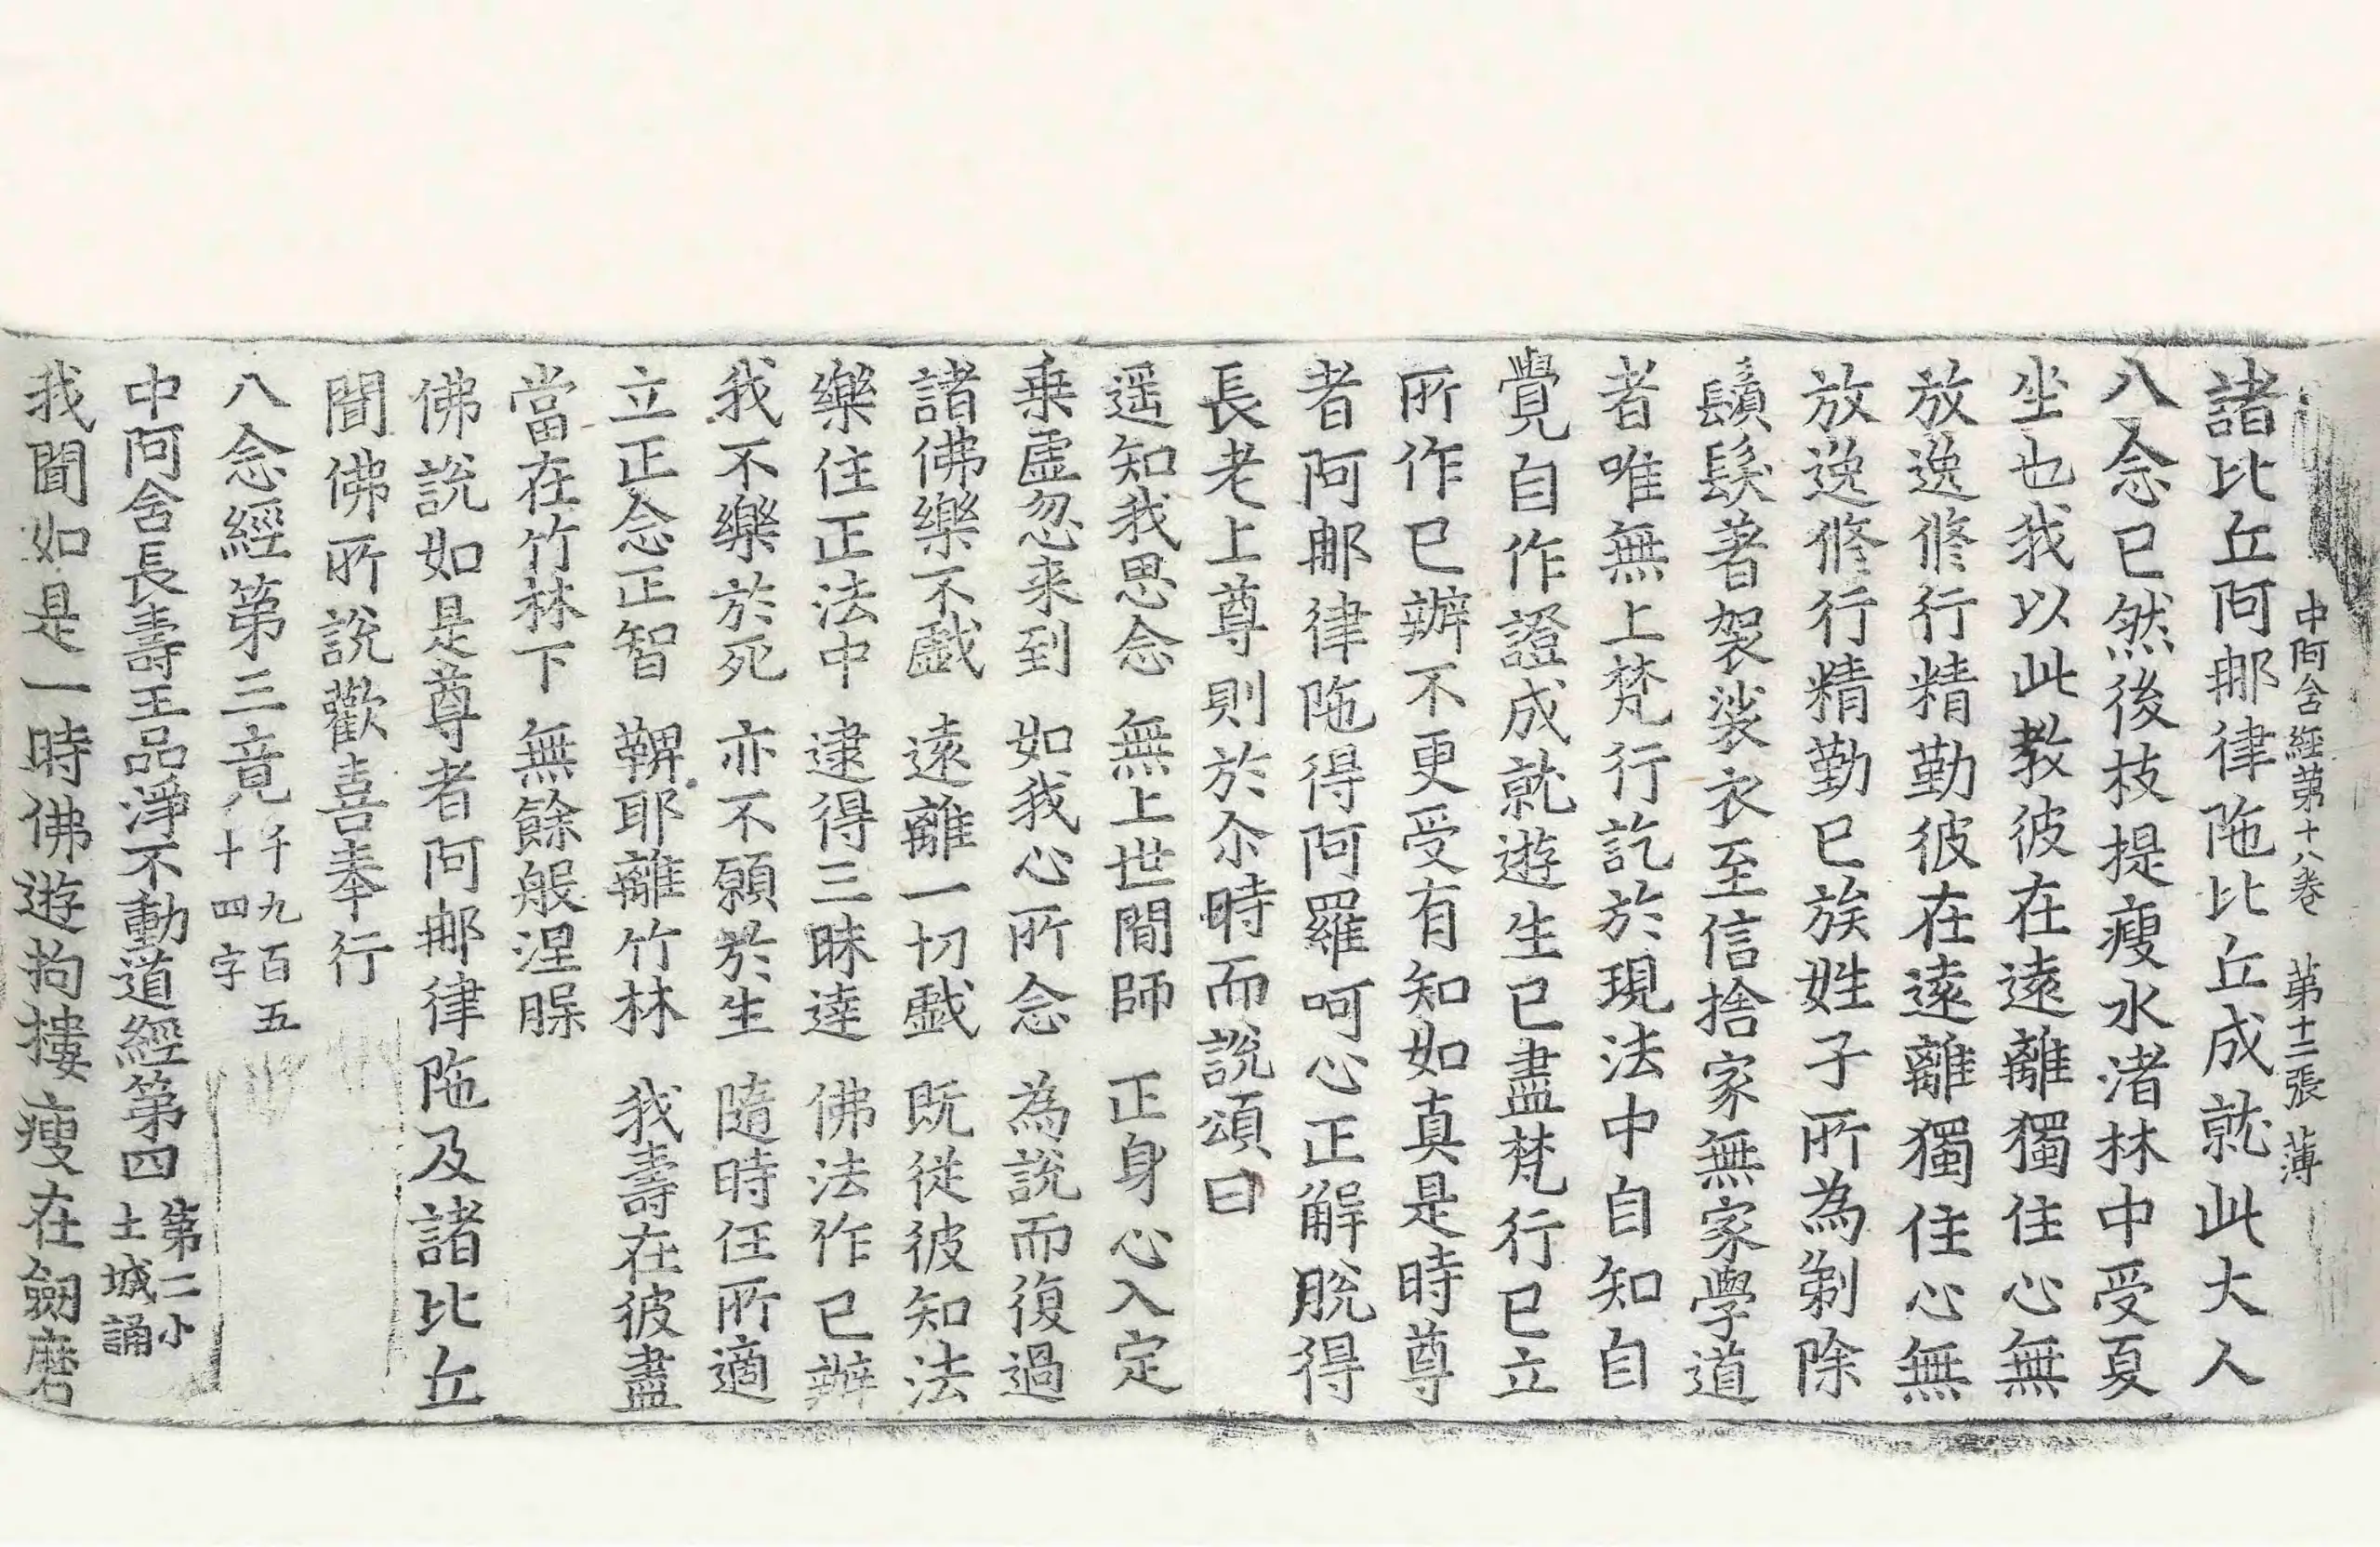 中阿含經第十八卷 第十二張 薄
諸比丘阿那律陁比丘成就此大人
八念已然後枝提瘦水渚林中受夏
坐也我以此教彼在遠離獨住心無
放逸修行精勤彼在遠離獨住心無
放逸修行精勤已族姓子所為剃除
鬚髮著袈裟衣至信捨家無家學道
者唯無上梵行訖於現法中自知自
覺自作證成就遊生已盡梵行已立
所作已辦不更受有知如真是時尊
者阿那律陁得阿羅呵心正解脫得
長老上尊則於尒時而說頌曰
遥知我思念 無上世間師 正身心入定
乗虛忽来到 如我心所念 為說而復過
諸佛樂不戲 遠離一切戲 既從彼知法
樂住正法中 逮得三昧達 佛法作已辦
我不樂於死 亦不願於生 隨時任所適
立正念正智 鞞耶離竹林 我壽在彼盡
當在竹林下 無餘般涅槃
佛說如是尊者阿那律陁及諸比丘
聞佛所說歡喜奉行
八念經第三竟 千九百五
十四字
中阿含長壽王品淨不動道經第四 第二小
土城誦
我聞如是一時佛遊拘摟瘦在劒磨